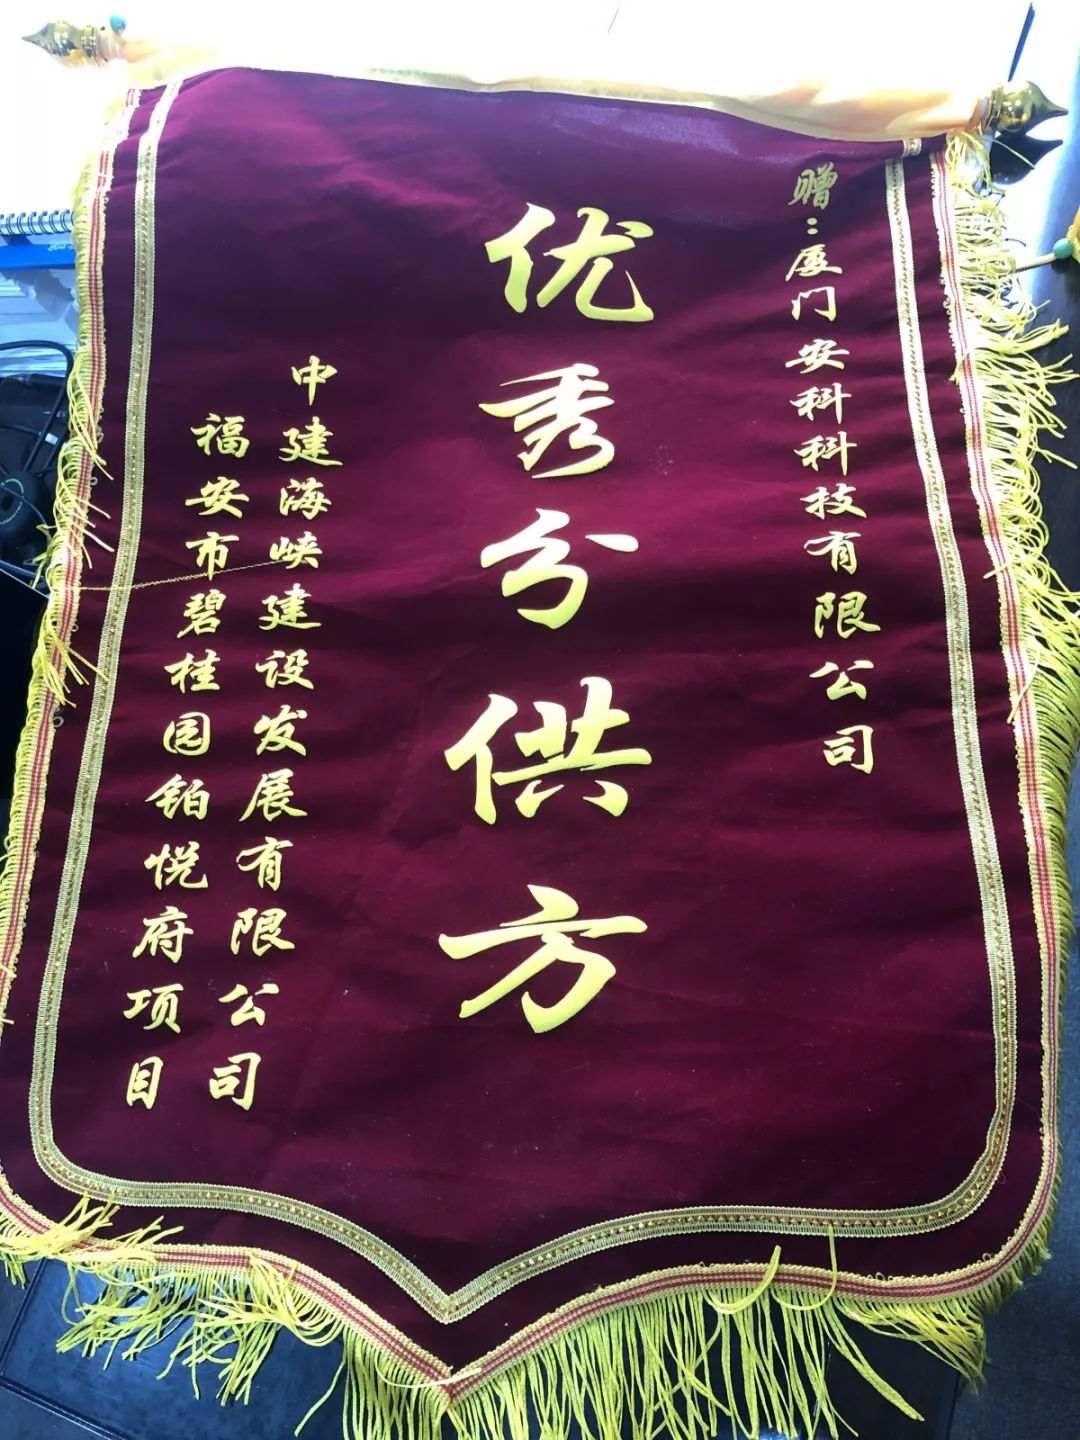 赠：厦门安科科技有限公司
优秀分供方
中建海峡建设发展有限公司
福安市碧桂园铂悦府项目